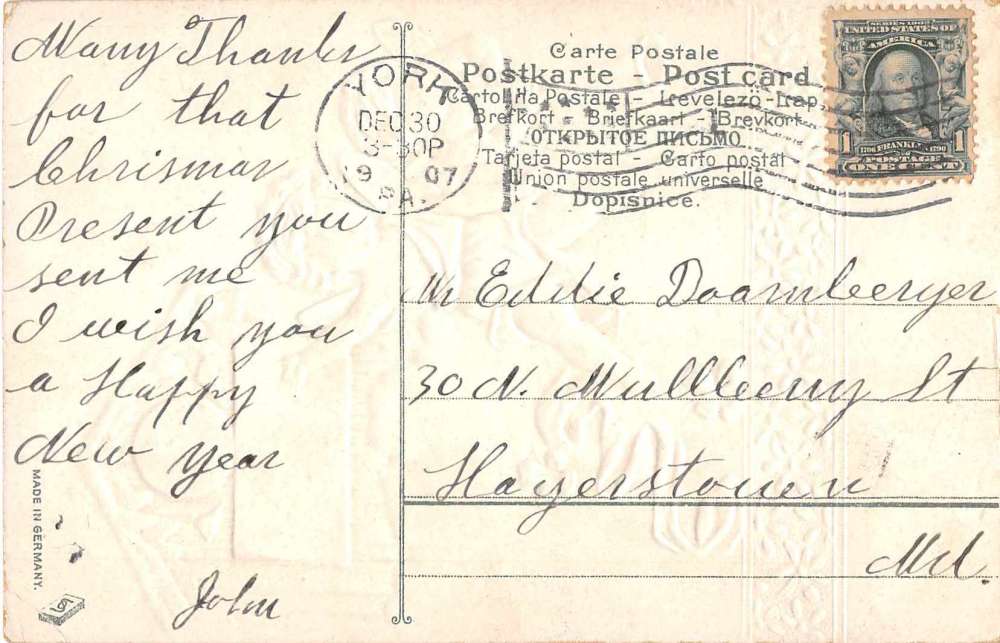 Many Thanks
for that
Chrismas
Present you
sent me
I wish you
a Happy
New Year
John
MADE IN GERMANY.
YORK
DEC 30
3-30P
19 07
PA.
Carte Postale
Postkarte - Post card
Cartolina Postale - Levelező-Lap
Brefkort - Briefkaart - Brevkort
ОТКРЫТОЕ ПИСЬМО
Tarjeta postal - Carto postal
Union postale universelle
Dopisnice.
SERIES 1902
UNITED STATES OF
AMERICA
1 1706 FRANKLIN 1790 1
POSTAGE
ONE CENT
Mr Eddie Doarnberger
30 N. Mullberry St
Hagerstown
Md.